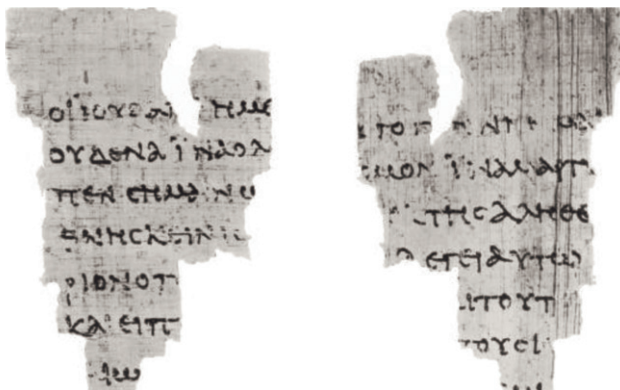 ΟΙΪΟΥΔΑΙ ΗΜΕ
ΟΥΔΕΝΑΪΝΑΟΛ
ΠΕΝϹΗΜΑΙΝΩ
ΘΝΗϹΚΕΙΝΙϹ
ΡΙΟΝΟΠ
ΚΑΙΕΙΠ
ΑΙΩ
ΤΟ
ϹΜΟΝΪΝΑΜΑΡΤΥ
ΤΗϹΑΛΗΘΕ
ΛΕΓΕΙΑΥΤΩ
ΙΤΟΥΤ
ΤΟΥϹΙ